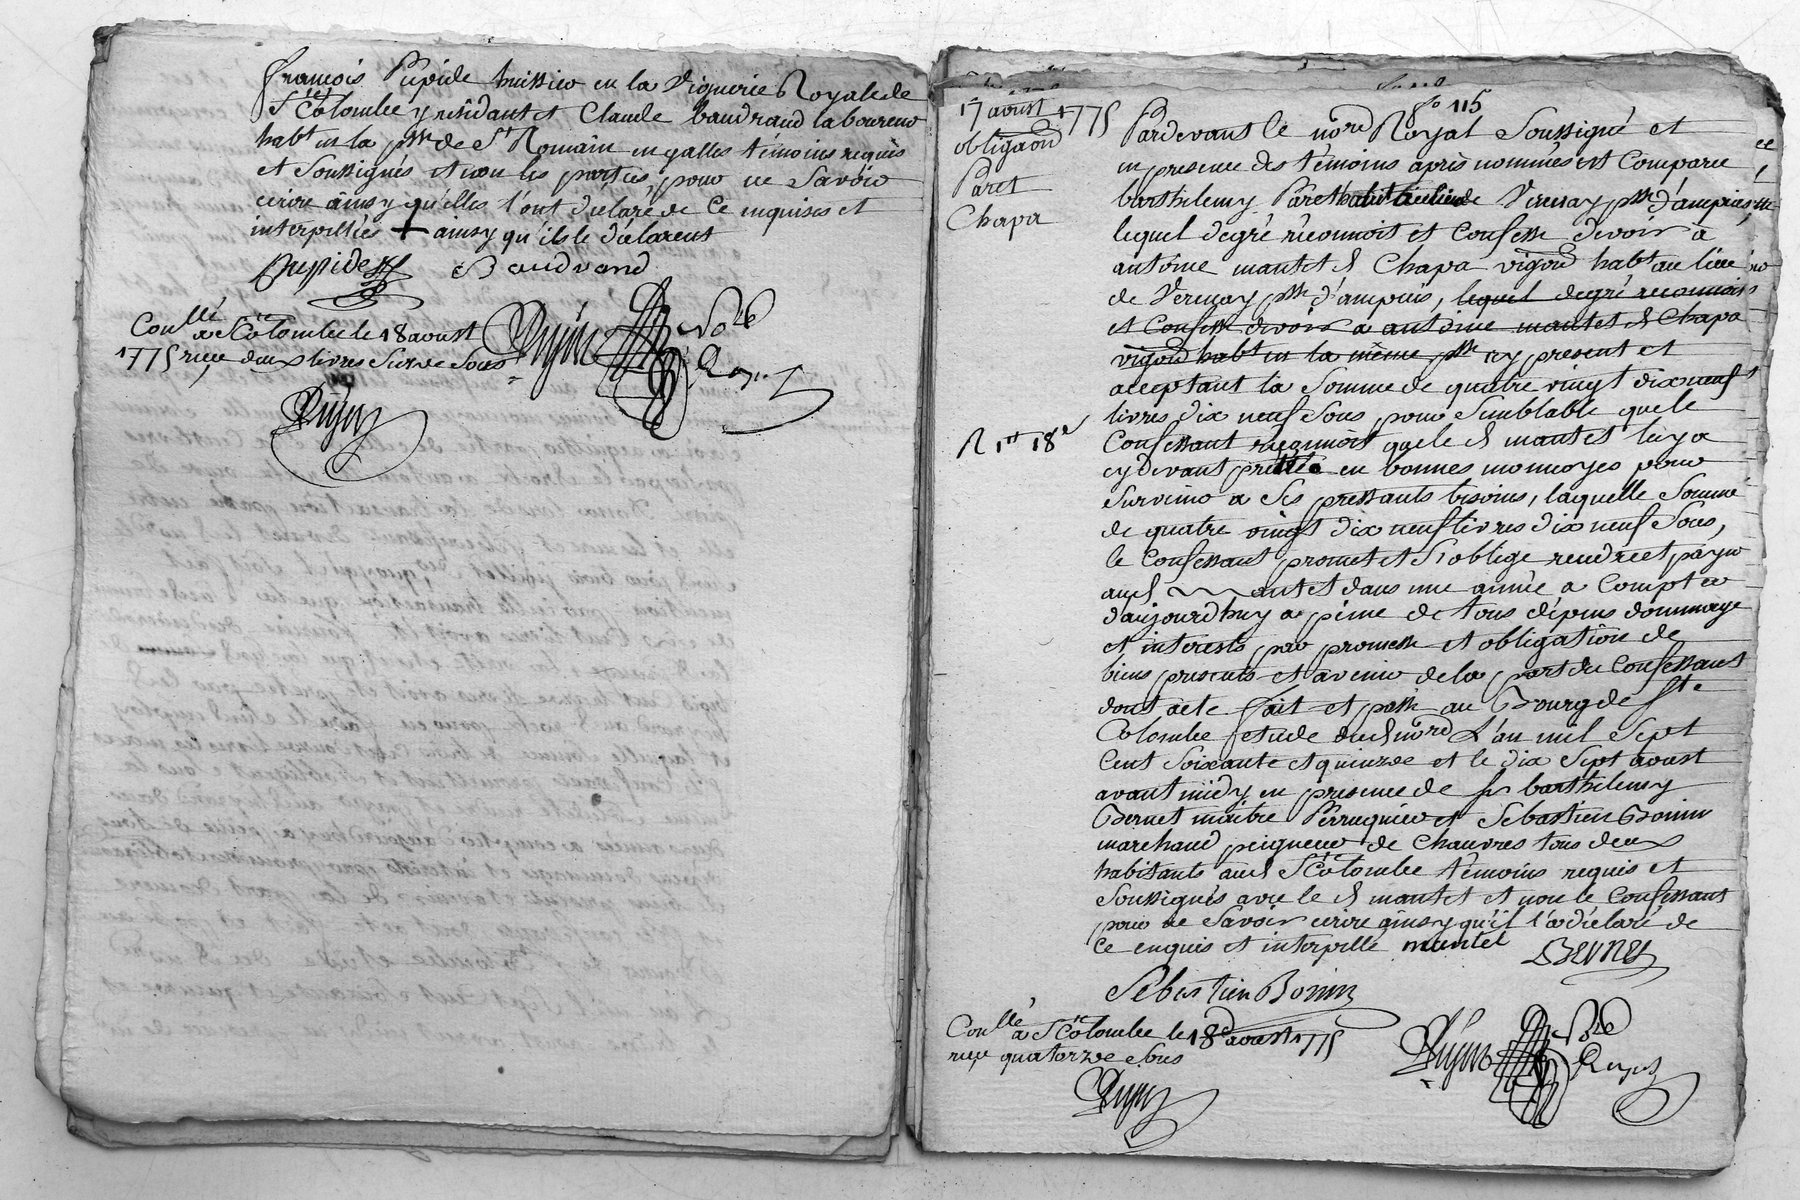 françois Pupide huissier en la Viguerie Royale de
Ste Colombe y résidant et Claude baudrand laboureur
habt en la psse de St Romain en galles témoins requis
et Soussignés et non les parties, pour ne Savoir
écrire ainsy qu'elles l'ont déclaré de Ce enquises et
interpellées + ainsy qu'ils le déclarent
Puppide Baudrand
Conllé à Ste Colombe le 18 aoust
1775 reçu deux livres Seize Sous
17 aoust 1775
obligaon
Paret
Chapa
R 1er 18e
fo 115
Pardevant le nore Royal Soussigné et
en presence des témoins après nommés est Comparu
barthelemy Paret habitant au lieu de Verenay psse d'ampuis,
lequel degré reconnoit et Confesse devoir à
antoine mantet dt Chapa vigon habt au lieu
de Verenay psse d'ampuis, lequel degré reconnoit
et Confesse devoir à antoine mantet dt Chapa
vigon habt en la même psse icy present et
acceptant la Somme de quatre vingt dix neuf
livres dix neuf Sous pour Semblable que le
Confessant reconnoit que led mantet luy a
cy devant prettée en bonnes monnoyes pour
Survenir à Ses pressants besoins, laquelle Somme
de quatre vingt dix neuf livres dix neuf Sous,
le Confessant promet et S'oblige rendre et payer
aud mantet dans une année à Compter
d'aujourd'huy a peine de tous dépens dommage
et interests par promesse et obligation de
biens presents et avenir de la part du Confessant
dont acte fait et passé au Bourg de Ste
Colombe étude dud nore L'an mil Sept
Cent Soixante et quinze et le dix Sept aoust
avant midy en presence de sr barthelemy
Bernet maître Perruquier et Sebastien Bonin
marchand peigneur de Chanvres tous deux
habitants aud Ste Colombe témoins requis et
Soussignés avec led mantet et non le Confessant
pour ne Savoir écrire ainsy qu'il l'a déclaré de
Ce enquis et interpellé mantel Bernet
Sebastien Bonin
Conllé à Ste Colombe le 18 aoust 1775
reçu quatorze Sous